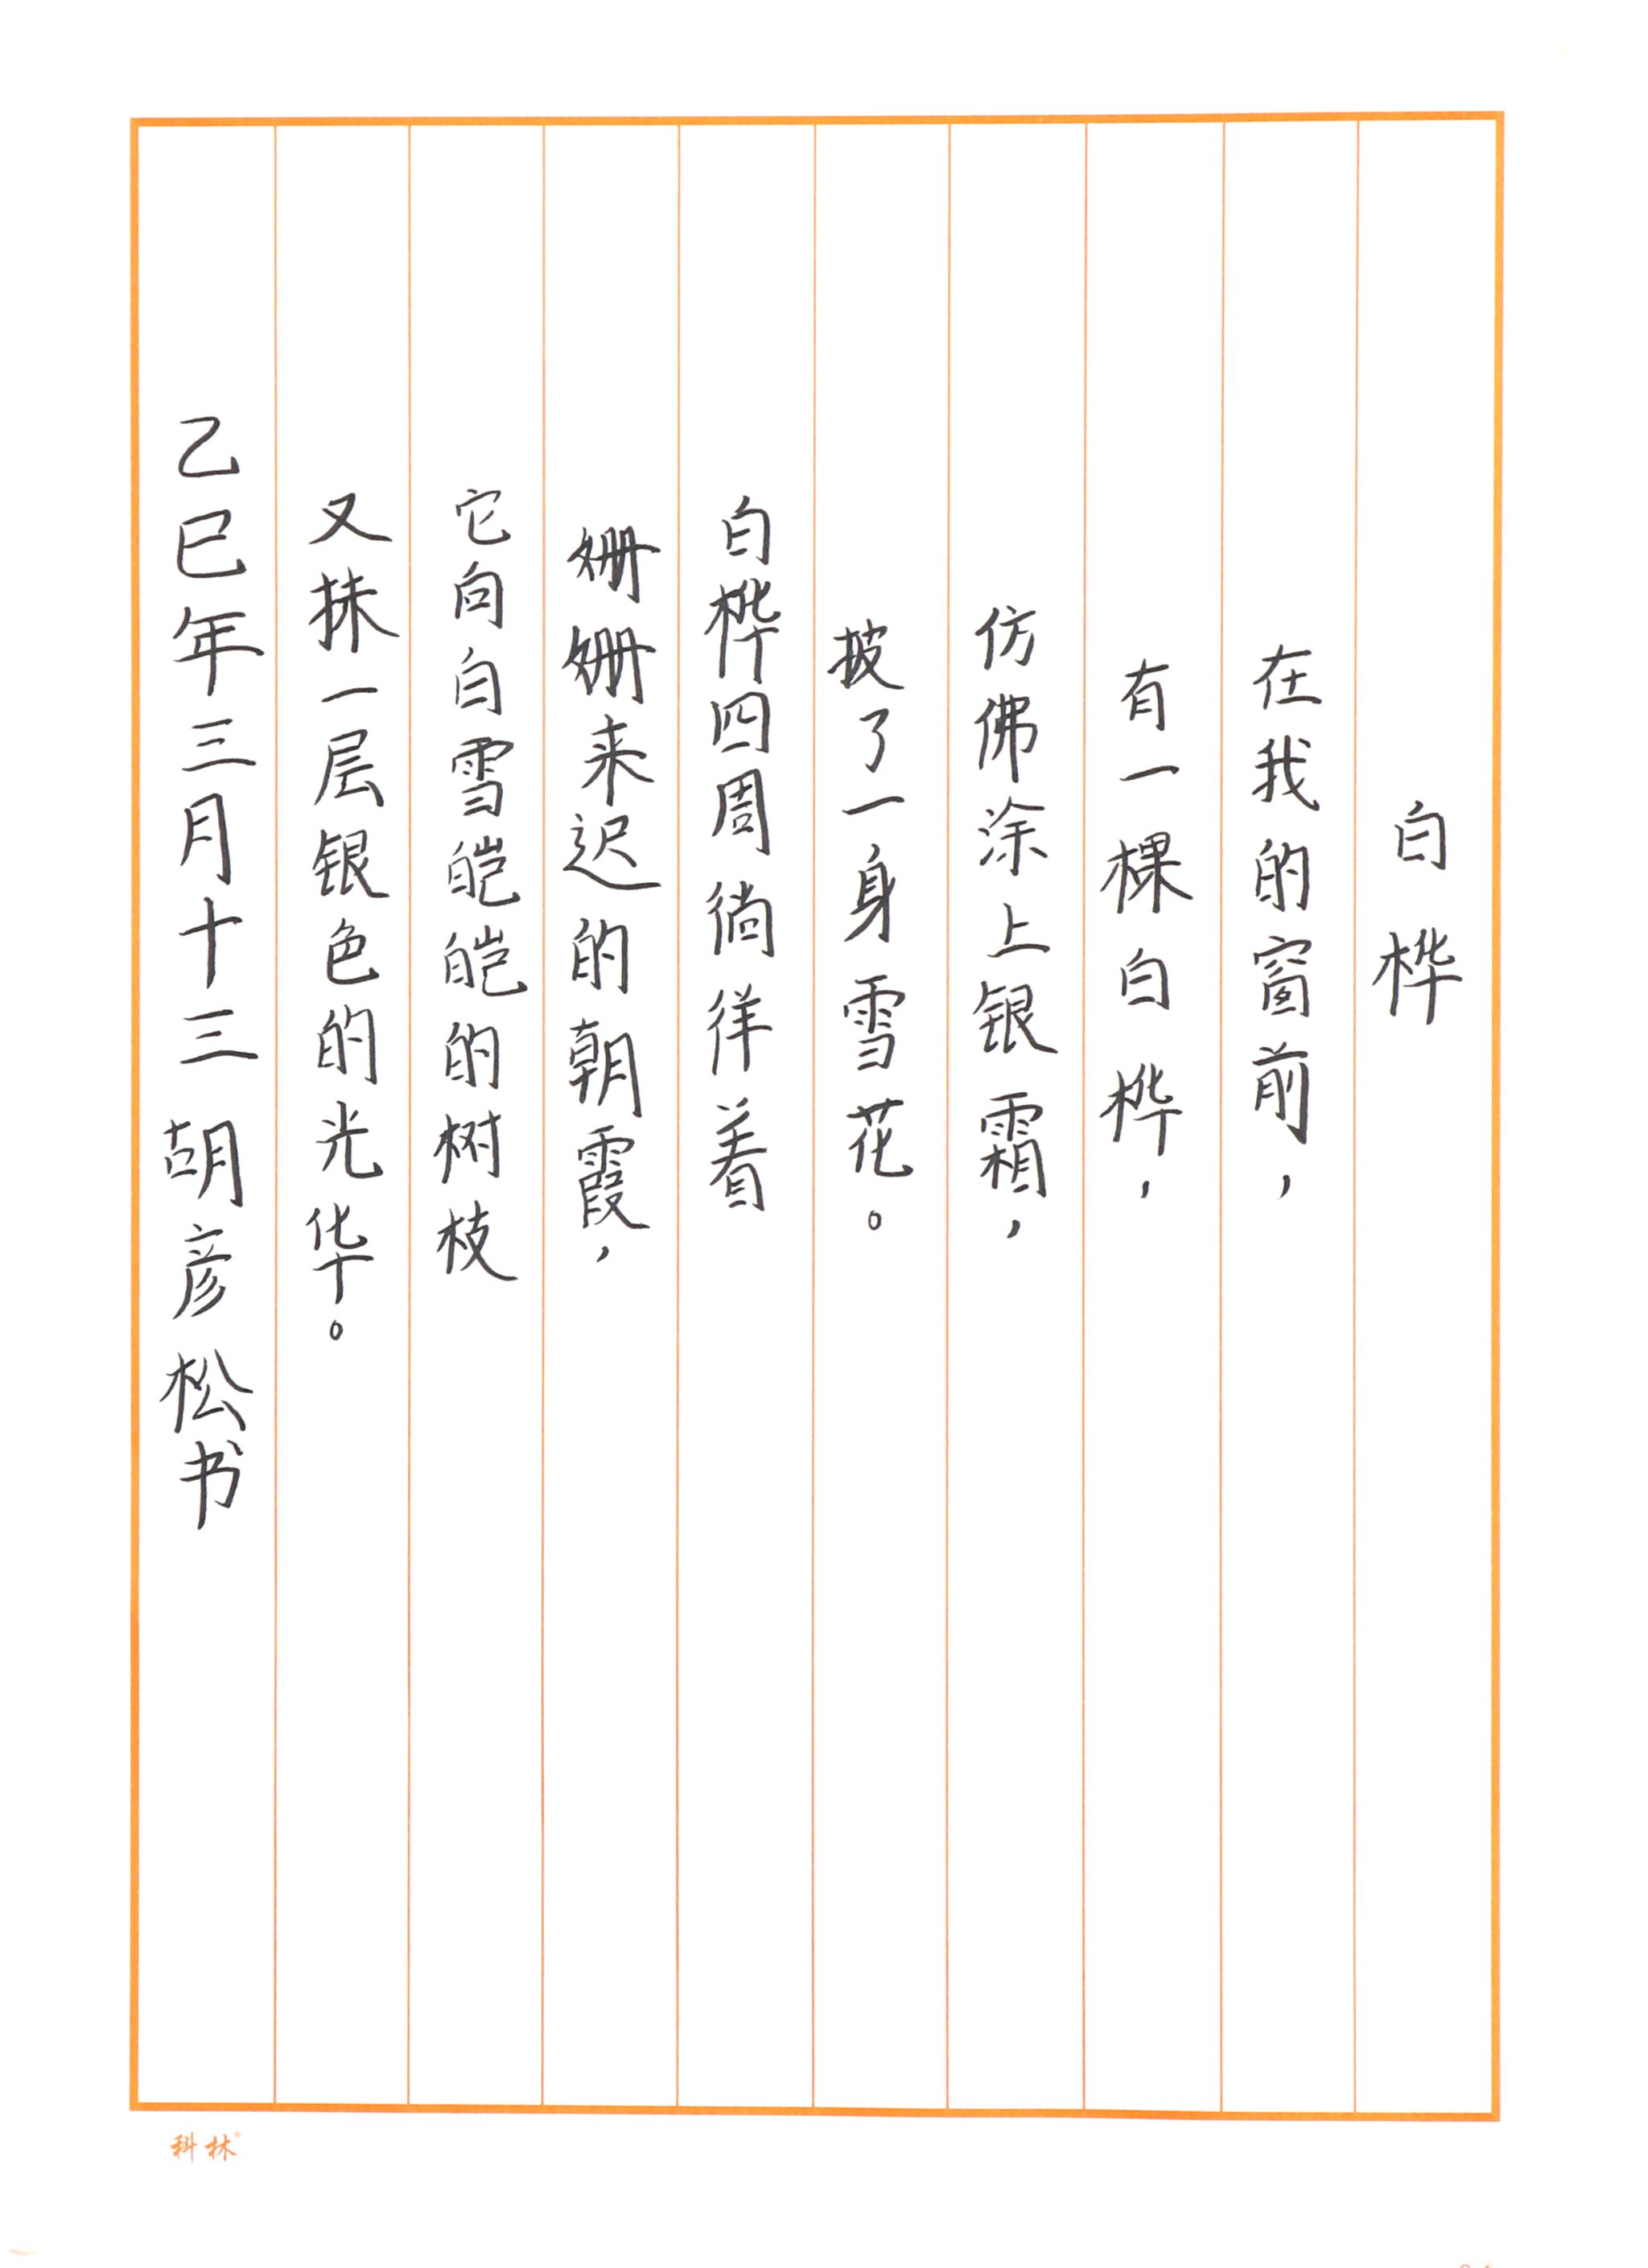 白桦
在我的窗前，
有一棵白桦，
仿佛涂上银霜，
披了一身雪花。
白桦四周徜徉着
姗姗来迟的朝霞，
它向白雪皑皑的树枝
又抹一层银色的光华。
乙巳年三月十三 胡彦松书
科林